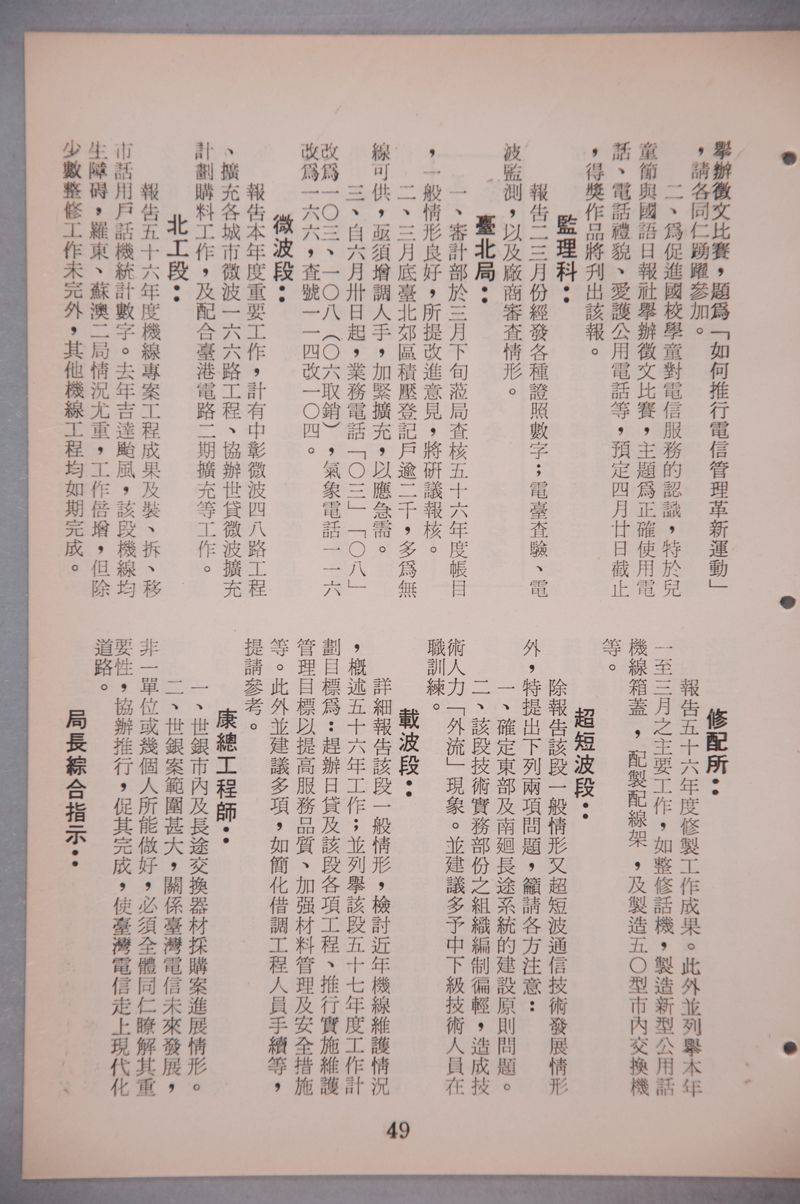 舉辦徵文比賽，題爲「如何推行電信管理革新運動」
，請各同仁踴躍參加。
二、爲促進國校學童對電信服務的認識，特於兒
童節與國語日報社舉辦徵文比賽，主題爲正確使用電
話、電話禮貌、愛護公用電話等，預定四月廿日截止
，得獎作品將刋出該報。
監理科：
報告二三月份經發各種證照數字；電臺査驗、電
波監測，以及廠商審査情形。
臺北局：
一、審計部於三月下旬蒞局査核五十六年度帳目
，一般情形良好，所提改進意見，將研議報核。
二、三月底臺北郊區積壓登記戶逾二千，多爲無
線可供，亟須增調人手，加緊擴充，以應急需。
三、自六月卅日起，業務電話「〇三」「〇八」
改爲一〇三、一〇八（〇六取銷），氣象電話一一六
改爲一六六，査號一一四改一〇四。
微波段：
報告本年度重要工作，計有中彰微波四八路工程
、擴充各城市微波一六六路工程、協辦世貸微波擴充
計劃購料工作，及配合臺港電路二期擴充等工作。
北工段：
報告五十六年度機線專案工程成果及裝、拆、移
市話用戶話機統計數字。去年吉達颱風，該段機線均
生障碍，羅東、蘇澳二局情況尤重，工作倍增，但除
少數整修工作未完外，其他機線工程均如期完成。
修配所：
報告五十六年度修製工作成果。此外並列舉本年
一至三月之主要工作，如整修話機，製造新型公用話
機線箱蓋，配製配線架，及製造五〇型市內交換機
等。
超短波段：
除報告該段一般情形又超短波通信技術發展情形
外，特提出下列兩項問題，籲請各方注意：
一、確定東部及南廻長途系統的建設原則問題。
二、該段技術實務部份之組織編制徧輕，造成技
術人力「外流」現象。並建議多予中下級技術人員在
職訓練。
載波段：
詳細報告該段一般情形，檢討近年機線維護情況
，槪述五十六年工作；並列舉該段五十七年度工作計
劃目標爲：趕辦日貸及該段各項工程、推行實施維護
管理目標以提高服務品質、加强材料管理及安全措施
等。此外並建議多項，如簡化借調工程人員手續等，
提請參考。
康總工程師：
一、世銀市內及長途交換器材採購案進展情形。
二、世銀案範圍甚大，關係臺灣電信未來發展，
非一單位或幾個人所能做好，必須全體同仁瞭解其重
要性，協辦推行，促其完成，使臺灣電信走上現代化
道路。
局長綜合指示：
49